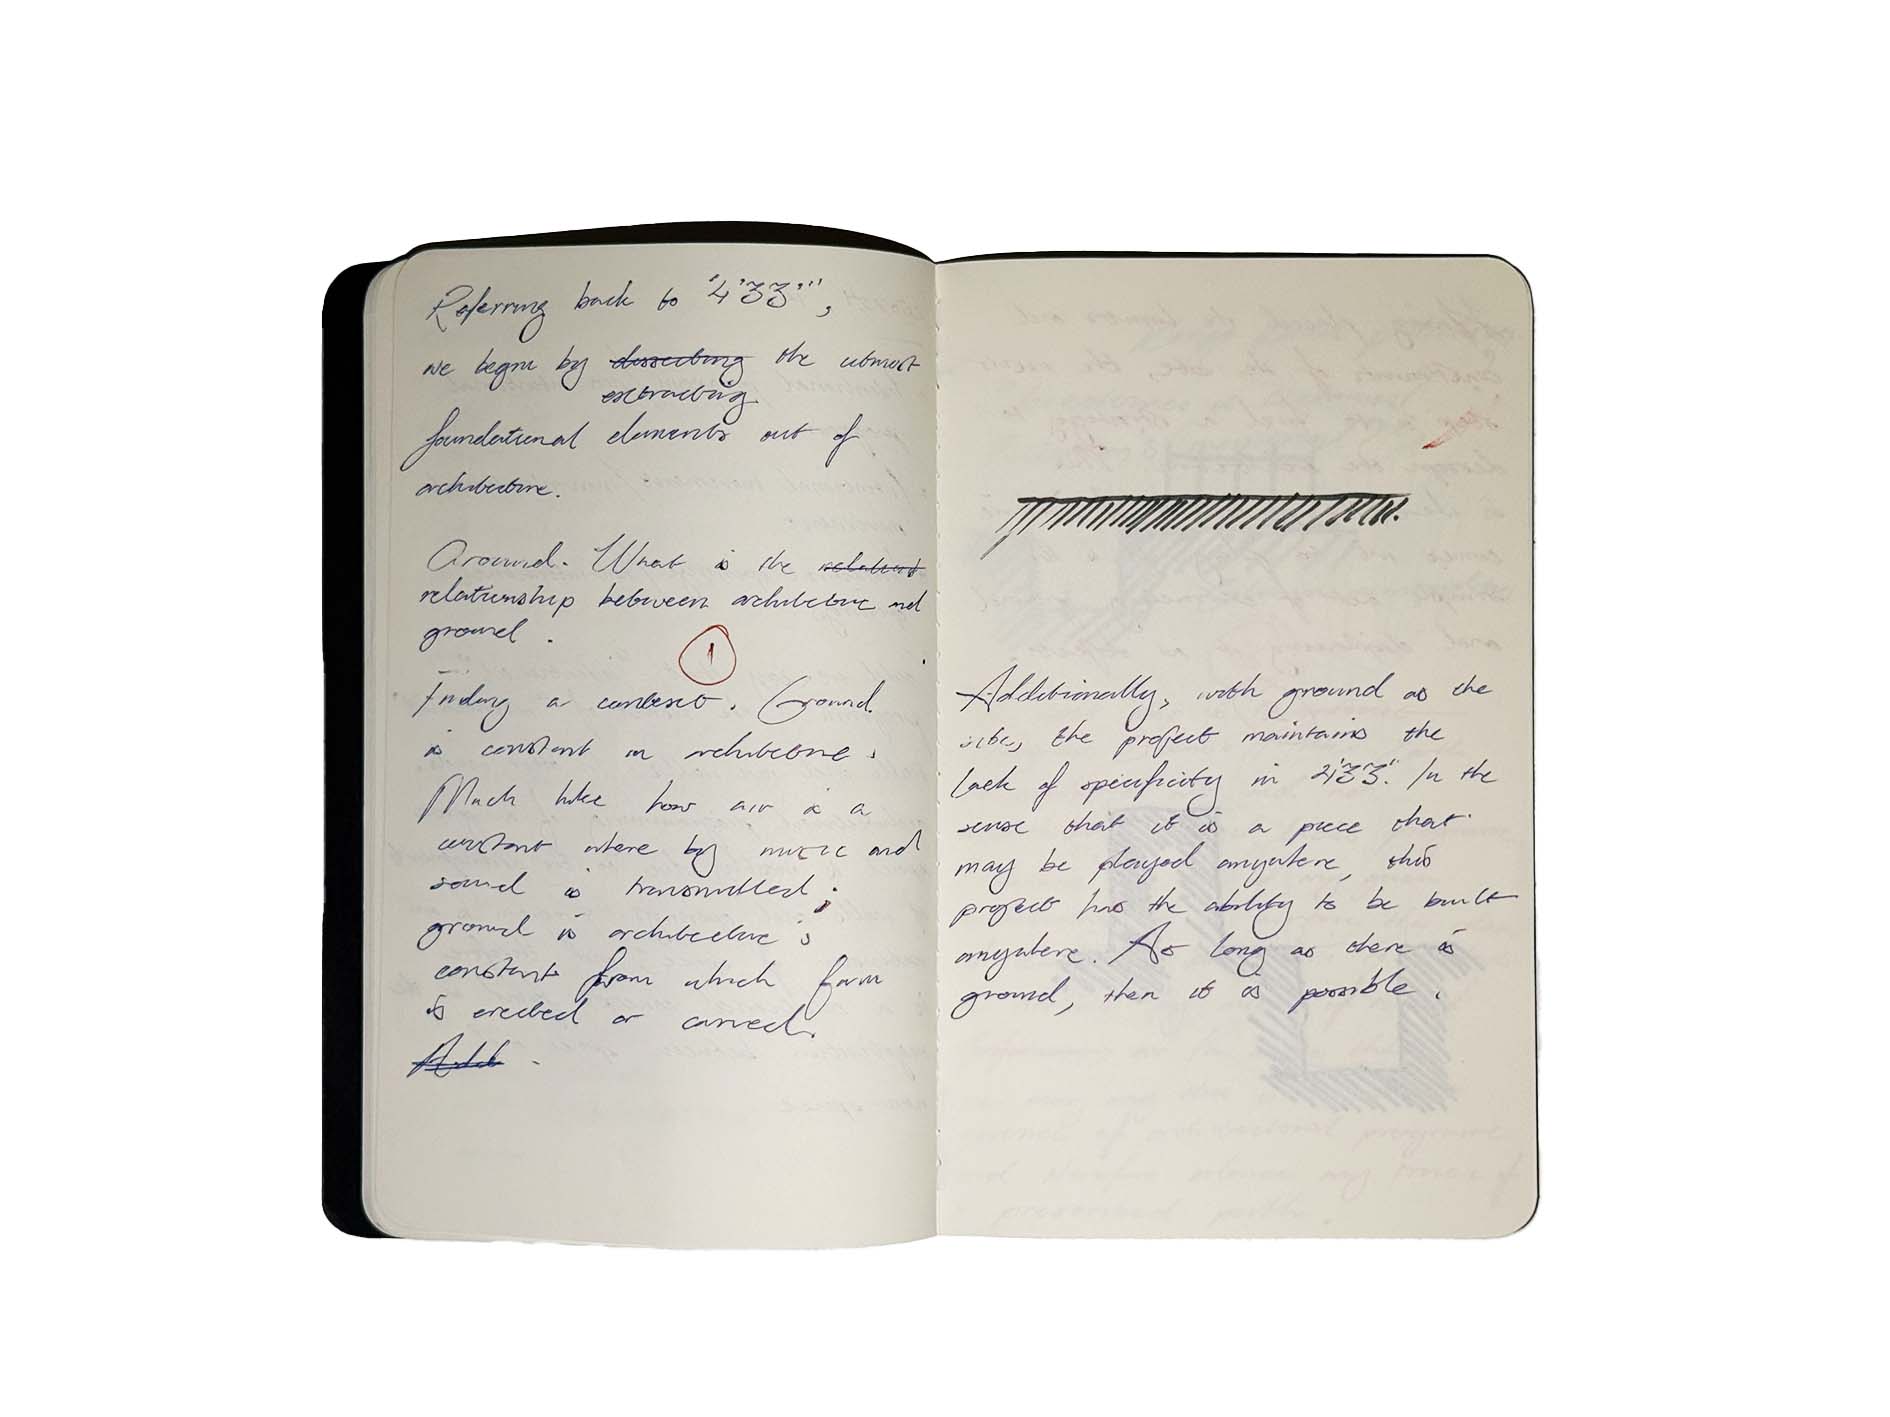 Referring back to '4'33"',
we begin by dissecting the utmost
extracting
foundational elements out of
architecture.
Ground. What is the relation
relationship between architecture and
ground.
1
Finding a context. Ground
is constant in architecture.
Much like how air is a
constant where by music and
sound is transmitted;
ground is architecture's
constant from which form
is erected or carved.
Add
Additionally, with ground as the
site, the project maintains the
lack of specificity in 4'33". In the
sense that it is a piece that
may be played anywhere, this
project has the ability to be built
anywhere. As long as there is
ground, then it is possible.